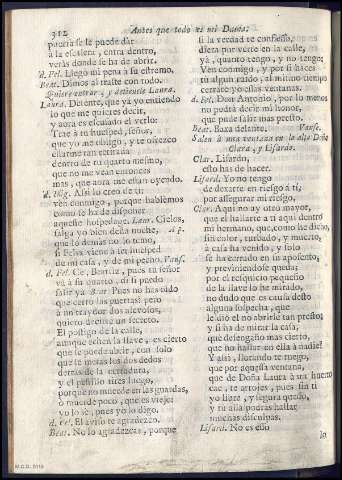 312 Antes que todo es mi Dama:
puerta se le puede dar
a la escalera, entra dentro,
verás donde se ha de abrir.
d. Fel. Llegó mi pena a su estremo.
Beat. Dimos al traste con todo.
Quiere entrar, y detienele Laura.
Laura. Detente, que ya yo entiendo
lo que me quieres decir,
y aora es escusado el verlo:
Trae à tu huesped, señor,
que yo me obligo, y te ofrezco
estarme tan
dentro de tu quarto mesmo,
que no me vean entonces
mas, que aora me están oyendo.
d. Iñig. Assi lo creo de tu:
ven conmigo, porque hablèmos
como se ha de disponer
aqueste hospedage. Laur. Cielos,
salga yo bien desta noche, à p.
que lo demàs no lo temo,
si Felix viene à ser huesped
de mi casa, y de mi pecho. Vans.
d. Fel. Ce, Beatriz, pues tu señor
và à su quarto, di si puedo
salir ya. Beat. Pues no has oìdo
que cerrò las puertas? pero
à un traydor dos alevosos,
quiero decirte un secreto.
El postigo de la calle,
aunque echen la llave, es cierto
que se puede abrir, con solo
que te metas los dedos
detràs de la cerradura,
y el pestillo tires luego,
porque no muerde en las guardas,
ò muerde poco, que es viejo:
yo lo sè, pues yo lo digo.
d. Fel. El aviso te agradezco.
Beat. No lo agradezcas, porque
si la verdad te confiesso,
diera por verte en la calle,
yà, quanto tengo, y no tengo;
Ven conmigo, y por si haces
tù algun ruido, al mismo tiempo
cerrarè yo essas ventanas.
d. Fel. Don Antonio, por lo menos
no podrà decir mi honor,
que pude salir mas presto.
Beat. Baxa delante. Vanse.
Salen à una ventana en lo alto Doña
Clara, y Lisardo.
Clar. Lisardo,
esto has de hacer.
Lisard. Yo no tengo
de dexarte en riesgo à tì,
por assegurar mi riesgo.
Clar. Aqui no ay otro mayor,
que el hallarte a tì aqui dentro
mi hermano, que, como he dicho,
sin color, turbado, y muerto,
à casa ha venido, y solo
se ha cerrado en su aposento,
y previniendole queda;
por el resquicio pequeño
de la llave lo he mirado,
no dudo que es causa desto
alguna sospecha, que
le diò el no abrirle tan presto;
y si ha de mirar la casa,
què desengaño mas cierto,
que no hallar en ella à nadie?
Y assi, llorando te ruego,
que por aquessa ventana,
que de Doña Laura à un huerto
cae, te arrojes, pues sin ti
yo libre, y segura quedo,
y tu alla podràs hallar
muchas disculpas.
Lisard. No es esso
lo